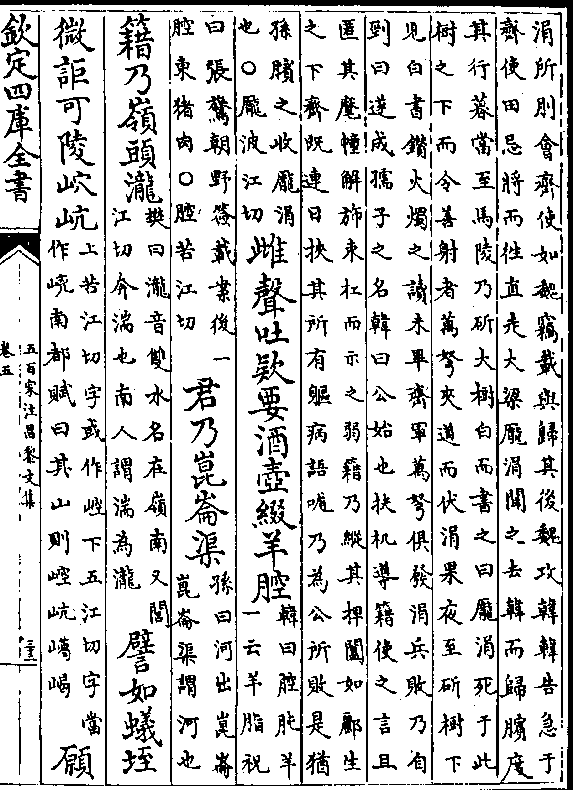 涓所刖會齊使如魏竊載與歸其後魏攻韓韓告急于
齊使田忌將而往直走大梁龎涓聞之去韓而歸臏度
其行暮當至馬陵乃斫大樹白而書之曰龎涓死于此
樹之下而令善射者萬弩夾道而伏涓果夜至斫樹下
見白書鑽火燭之讀未畢齊軍萬弩俱發涓兵敗乃自
剄曰遂成孺子之名韓曰公始也扶机導籍使之言且
匿其麾幢解斾束杠而示之弱籍乃縱其捭闔如郦生
之下齊既連日挾其所有軀病語唲乃為公所敗是猶
孫臏之收龎涓
也○龎波江切
雌聲吐欵要酒壺綴羊腔
韓曰腔肫羊
一云羊脂祝
曰張鷟朝野僉載業後一
腔東猪肉○腔苦江切
君乃崑崙渠
孫曰河出崑崙
崑崙渠謂河也
籍乃嶺頭瀧
樊曰瀧音雙水名在嶺南又閭
江切奔湍也南人謂湍為瀧
譬如蟻垤
微詎可陵崆㟅
上苦江切字或作㟅下五江切字當
作嵈南都賦曰其山則崆㟅嶱嵑
願
欽定四庫全書
五百家注昌黎文集
卷五